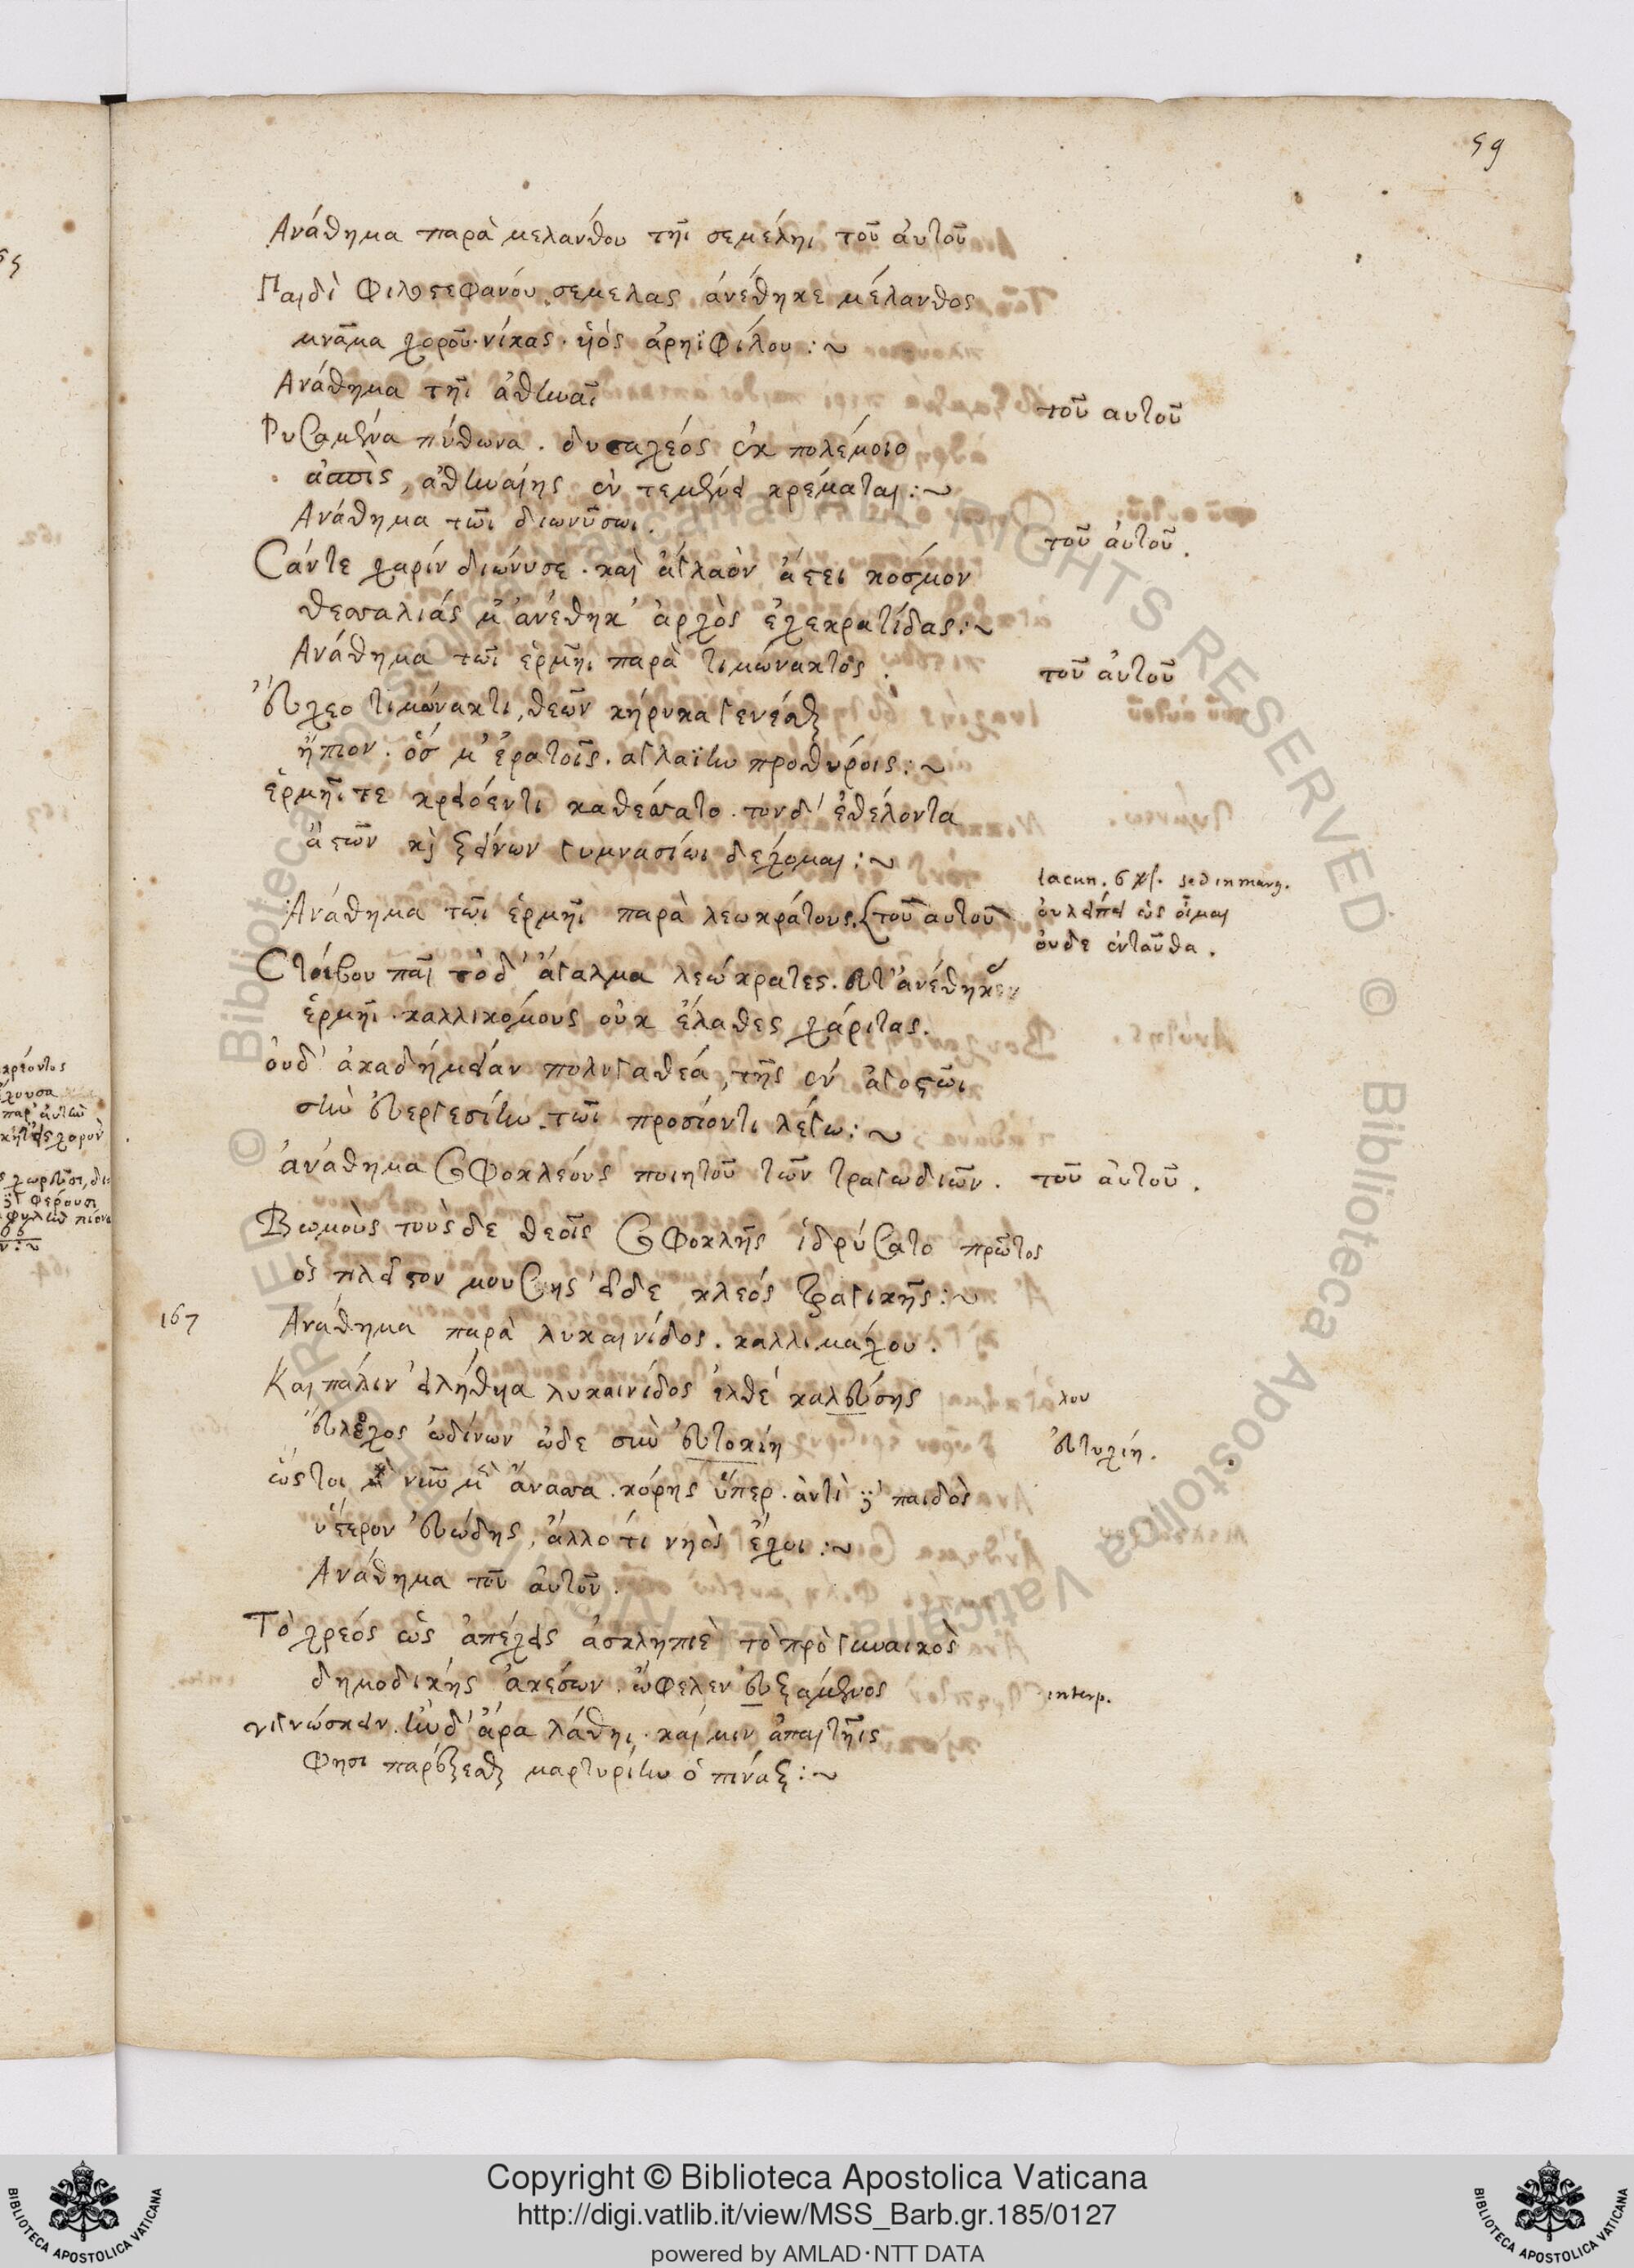 59
Ανάθημα παρὰ μελάνθου τῆι σεμέληι τοῦ ἀυτοῦ
Παιδὶ Φιλοστεφάνου σεμελας ἀνέθηκε μέλανθος
μνᾶμα χοροῦ· νίκας· ὑιὸς ἀρηϊφίλου:~
Ανάθημα τῆι ἀθηναῖ
τοῦ αυτοῦ
Ρυσαμένα πύθωνα. δυσαχεός ἐκ πολέμοιο
ἀσπὶς, ἀθηναίης ἐν τεμένει κρέμαται:~
Ανάθημα τῶι διωνῦσωι.
τοῦ ἀυτοῦ.
Σάντε χαρίν διώνυσε. καὶ ἀγλαὸν ἄστει κοσμον
θεσσαλιάς μ' ἀνέθηκ' ἀρχὸς ἐχεκρατίδας:~
Ανάθημα τῶι ἑρμῆι παρὰ τιμώνακτος.
τοῦ ἀυτοῦ
Ἔυχεο τιμώνακτι, θεῶν κήρυκα γενέσθαι
ἤπιον. ὅσ μ' ἐρατοῖς. αγλαϊην προθύροις:~
ἑρμῆι τε κρειόεντι καθέσσατο. τονδ' ἐθέλοντα
ἀστῶν καὶ ξείνων γυμνασίωι δέχομαι:~
Ἀνάθημα τῶι ἑρμῆι παρὰ λεωκράτους. [τοῦ αυτοῦ
lacun. 6 χſ. sed in marg.
ου λείπει ὡς οἶμαι
ὀυδε ἐνταῦθα.
Στοίβου παῖ τόδ' ἄγαλμα λεώκρατες. ἐυτ' ἀνέθηκεν
ἑρμῆι. καλλικόμους οὐκ ἔλαθες χάριτας.
ὀυδ' ἀκαδήμειαν πολυγαθεά, τῆς ἐν ἀγοστῶι
σὴν ἐυεργεσίην. τῶι προσιόντι λέγω:~
ἀνάθημα Σοφοκλέους ποιητοῦ τῶν τραγωδιῶν. τοῦ ἀυτοῦ.
Βωμοὺς τουὸσδε θεοῖς Σοφοκλῆς ἱδρύσατο πρῶτος
ὃς πλεῖστον μούσης εἷδε κλεός τραγικῆς:~
167
Ανάθημα παρὰ λυκαινίδος. καλλιμάχου.
Και πάλιν εἰλήθυια λυκαινίδος ἐλθέ καλευσης
λου
ἔυλεχος ὠδίνων ὧδε σὺν ἐυτοκίη
ἐυτυχίη.
ὥς τοι νῦν μὲν ἄνασσα. κόρης ὕπερ. ἀντὶ δὲ παιδὸς
ὕστερον ἐυώδης, ἄλλο τι νηὸς ἔχοι:~
Ανάθημα τοῦ ἀυτοῦ.
Τὸ χρεός ὡς ἀπέχεις ἀσκληπιὲ τὸ πρὸ γυναικὸς
δημοδικής ἀκέσων. ὤφελεν ἐυξάμενος
interp.
γιγνώσκειν. ἢν δ' ἄρα λάθηι. καί μιν ἀπαιτῆις
Φησι παρέξεσθαι μαρτυρίην ὁ πίναξ:~
Copyright © Biblioteca Apostolica Vaticana
http://digi.vatlib.it/view/MSS_Barb.gr.185/0127
powered by AMLAD·NTT DATA